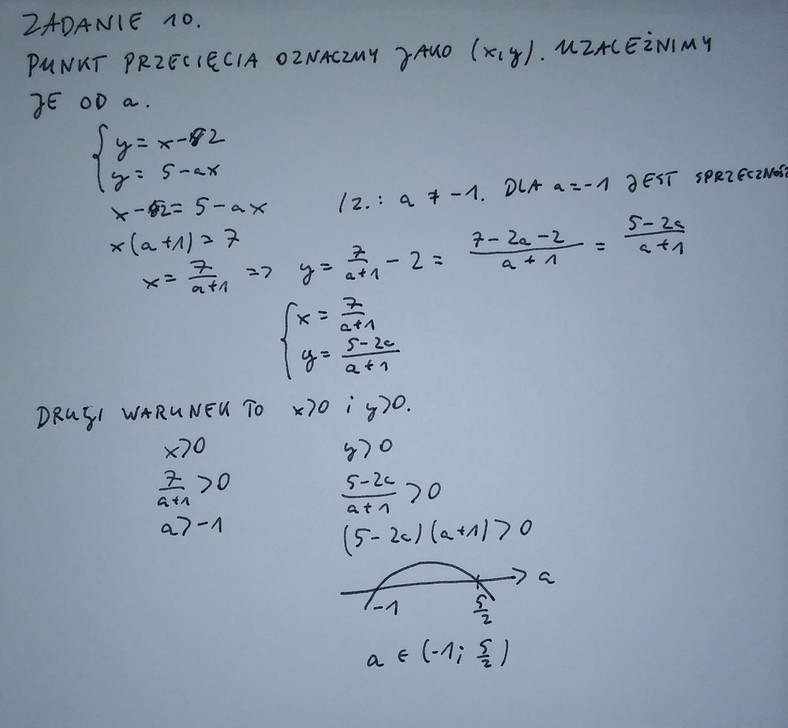 ZADANIE 10.
PUNKT PRZECIĘCIA OZNACZMY JAKO (x,y). UZALEŻNIMY
JE OD a.
y = x-2
y = 5-ax
x-2 = 5-ax /z.: a ≠ -1. DLA a=-1 JEST SPRZECZNOŚ
x(a+1) = 7
x = 7/(a+1) => y = 7/(a+1) - 2 = (7-2a-2)/(a+1) = (5-2a)/(a+1)
x = 7/(a+1)
y = (5-2a)/(a+1)
DRUGI WARUNEK TO x>0 i y>0.
x>0 y>0
7/(a+1) >0 (5-2a)/(a+1) >0
a>-1 (5-2a)(a+1)>0
a
-1 5/2
a ∈ (-1; 5/2)